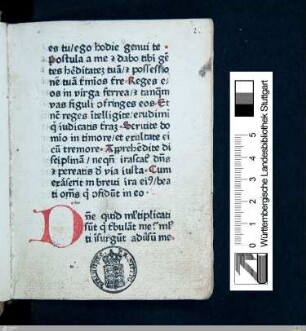 2.
es tu/ ego hodie genui te ·
Postula a me & dabo tibi gē
tes hēditatē tuā/ & possessio
nē tuā t̄mīos t̄re · Reges e/
os in virga ferrea/ & tanq̄m
vas figuli ↄfringes eos · Et
nē reges ītelligite/ erudimī
q̄ iudicatis traʒ · Seruite do
mīo in timore/ et exultate ei
cū tremore · Apprehēdite di
sciplinā / neqn̄ irascať dn̄s
& pereatis d̄ via iusta · Cum
exarserit ī breui ira ei⁹/ bea
ti om̄s q̄ ↄfidūt in eo ·
Dn̄e quid ml̄tiplicati
sūt q̄ tr̄bulāt me/ ml̄
ti īsurgūt aduſū me ·
Württembergische Landesbibliothek Stuttgart
0 1 2 3 4 5